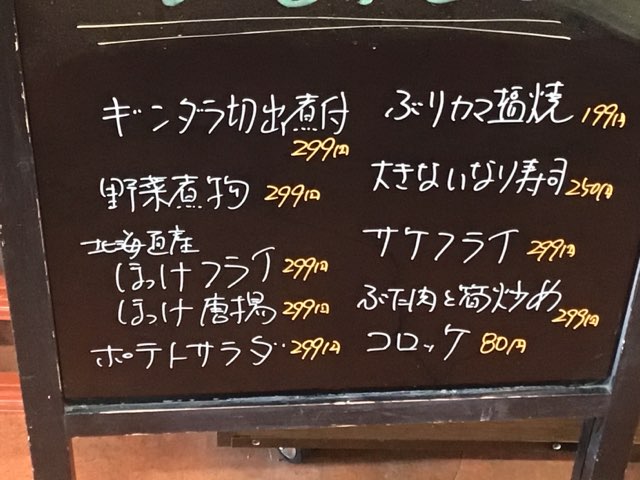 ギンダラ切出煮付
299円
野菜煮物 299円
北海道産
ほっけフライ 299円
ほっけ唐揚 299円
ポテトサラダ 299円
ぶりカマ塩焼 199円
大きないなり寿司 250円
サケフライ 299円
ぶた肉と筍炒め
299円
コロッケ 80円